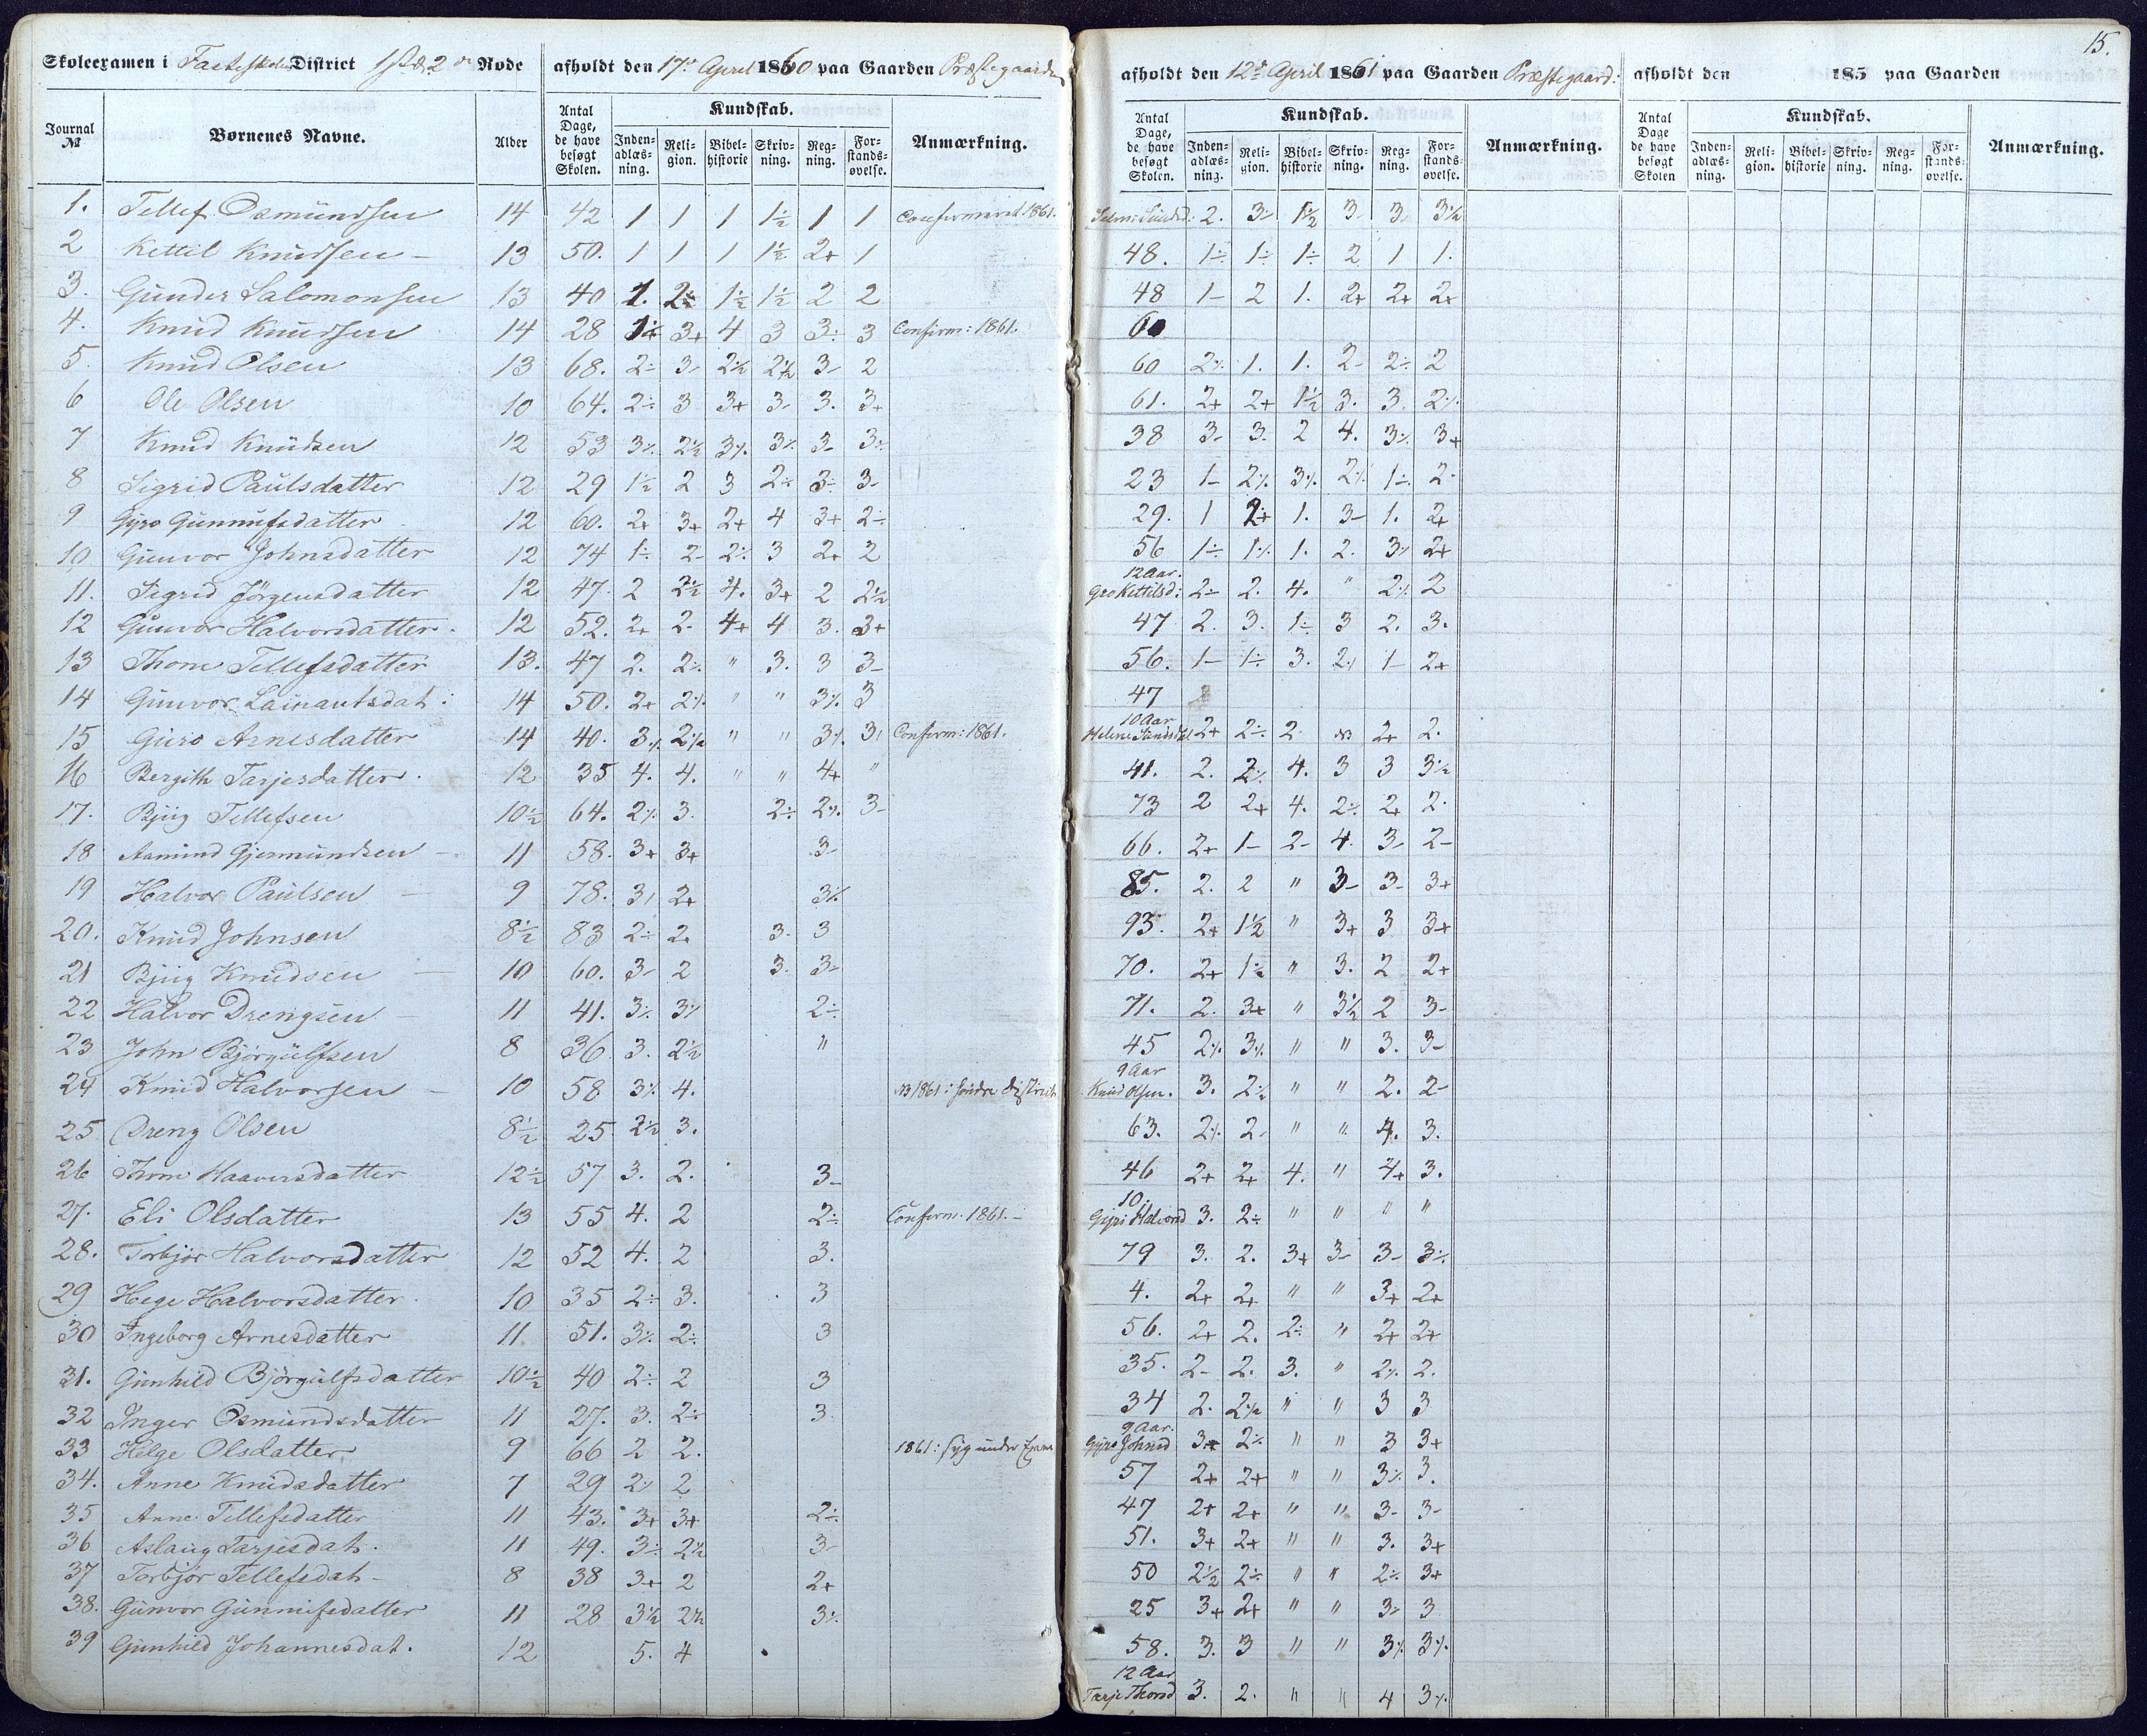 15.
Skoleexamen i Fasteskolens District 1st & 2de Rode afholdt den 17de April 1860 paa Gaarden Præstegaarden
afholdt den 12te April 1861 paa Gaarden Præstegaard: afholdt den 185 paa Gaarden
Journal № Børnenes Navne. Alder Antal Dage, de have besøgt Skolen. Kundskab. Inden-adlæs-ning. Reli-gion. Bibel-historie Skriv-ning. Reg-ning. For-stands-øvelse. Anmærkning.
Antal Dage, de have besøgt Skolen. Kundskab. Inden-adlæs-ning. Reli-gion. Bibel-historie Skriv-ning. Reg-ning. For-stands-øvelse. Anmærkning.
Antal Dage de have besøgt Skolen Kundskab. Inden-adlæs-ning. Reli-gion. Bibel-historie Skriv-ning. Reg-ning. For-stands-øvelse. Anmærkning.
1. Tellef Osmundsen 14 42 1 1 1 1½ 1 1 Confirmeret 1861. 2. 3- 1½ 3- 3- 3½
2 Kettil Knudsen - 13 50. 1 1 1 1½ 2+ 1 48. 1÷ 1÷ 1÷ 2 1 1.
3. Gunder Salomonsen 13 40 1. 2½ 1½ 1½ 2 2 48 1- 2 1. 2+ 2+ 2+
4. Knud Knudsen 14 28 3+ 4 3 3÷ 3 Confirm: 1861. 60
5. Knud Olsen 13 68. 2÷ 3- 2½ 2½ 3- 2 60 2÷ 1. 1. 2- 2÷ 2
6 Ole Olsen 10 64. 2÷ 3 3+ 3- 3. 3+ 61. 2+ 2+ 1½ 3. 3. 2÷
7 Knud Knudsen 12 53 3÷ 2½ 3÷ 3÷ 3- 3÷ 38 3- 3. 2 4. 3÷ 3+
8 Sigrid Paulsdatter 12 29 1½ 2 3 2÷ 3÷ 3- 23 1- 2÷ 3÷ 2÷ 1÷ 2-
9 Gyro Gunnufsdatter 12 60. 2+ 3+ 2+ 4 3+ 2÷ 29. 1 2+ 1. 3- 1. 2+
10 Gunvor Johnsdatter 12 74 1÷ 2- 2÷ 3 2+ 2 56 1÷ 1÷ 1. 2. 3÷ 2+
11. Sigrid Jörgensdatter 12 47. 2 2½ 4. 3+ 2 2½ 12 Aar. Gro Kettilsd: 2÷ 2. 4. " 2÷ 2
12 Gunvor Halvorsdatter. 12 52. 2+ 2. 4+ 4 3. 3+ 47 2. 3. 1÷ 3 2. 3.
13 Thone Tellefsdatter 13. 47 2. 2÷ " 3. 3 3- 56. 1- 1÷ 3. 2÷ 1- 2+
14 Gunvor Lainautsdat: 14 50. 2+ 2÷ " " 3÷ 3 47
15 Guro Arnesdatter 14 40. 3÷ 2½ " " 3÷ 3÷ Confirm: 1861. 10 Aar 2+ 2÷ 2. 2+ 2.
16 Bergith Tarjesdatter. 12 35 4. 4. " " 4+ " 41. 2. 2÷ 4. 3 3 3½
17. Bjug Tellefsen 10½ 64. 2÷ 3. 2÷ 2÷ 3- 73 2 2+ 4. 2÷ 2+ 2.
18 Aamund Gjermundsen - 11 58. 3+ 3+ 3- 66. 2+ 1- 2- 4. 3- 2-
19 Halvor Paulsen - 9 78. 3÷ 2+ 3÷ 85. 2. 2 " 3- 3- 3+
20. Knud Johnsen 8½ 83 2÷ 2+ 3. 3 93. 2+ 1½ " 3+ 3 3+
21 Bjug Knudsen - 10 60. 3- 2 3. 3- 70. 2+ 1½ " 3. 2 2+
22 Halvor Drengsen - 11 41. 3÷ 3÷ 2÷ 71. 2. 3+ " 3½ 2 3-
23 John Bjørgulfsen 8 36 3. 2½ " 45 2÷ 3÷ " " 3. 3-
24 Knud Halvorsen - 10 58 3÷ 4. NB 1861: søndre District 9 Aar Knud Olsen. 3. 2½ " " 2. 2-
25 Dreng Olsen 8½ 25 2½ 3. 63. 2÷ 2- " " 4. 3.
26 Thone Haaversdatter 12½ 57 3. 2. 3- 46 2+ 2+ 4. " 4+ 3.
27. Eli Olsdatter 13 55 4. 2 2÷ Confirm. 1861. - 10. Gyri Halvorsd 3. 2÷ " " " "
28. Torbjør Halvorsdatter 12 52 4. 2 3. 79 3. 2. 3+ 3- 3- 3÷
29 Hege Halvorsdatter. 10 35 2÷ 3. 3 4. 2+ 2+ " " 3+ 2+
30 Ingeborg Arnesdatter 11 51. 3÷ 2÷ 3 56. 2+ 2. 2÷ " 2+ 2+
31. Gunhild Bjørgulfsdatter 10½ 40 2÷ 2 3 35. 2- 2. 3. " 2÷ 2.
32 Inger Osmundsdatter 11 27. 3. 2÷ 3 34 2. 2½ " " 3 3
33 Helge Olsdatter 9 66 2 2. 1861: syg under Exam 9 Aar. Gyro Johnsd 3+ 2÷ " " 3 3+
34. Anne Knudsdatter 7 29 2÷ 2 57 2+ 2+ " " 3÷ 3.
35 Anne Tellefsdatter 11 43. 3+ 3+ 2÷ 47 2+ 2+ " " 3- 3-
36 Aslaug Tarjesdat. 11 49. 3÷ 2½ 3- 51. 3+ 2+ " " 3. 3+
37 Torbjør Tellefsdat- 8 38 3+ 2 2+ 50 2½ 2÷ " " 2÷ 3+
38. Gunvor Gunnufsdatter 11 28 3½ 2½ 3÷ 25 3+ 2+ " " 3- 3
39 Gunhild Johannesdat. 12 5. 4 58. 3. 3 " " 3÷ 3÷
12 Aar Tarje Thorsd 3. 2. " " 4 3÷